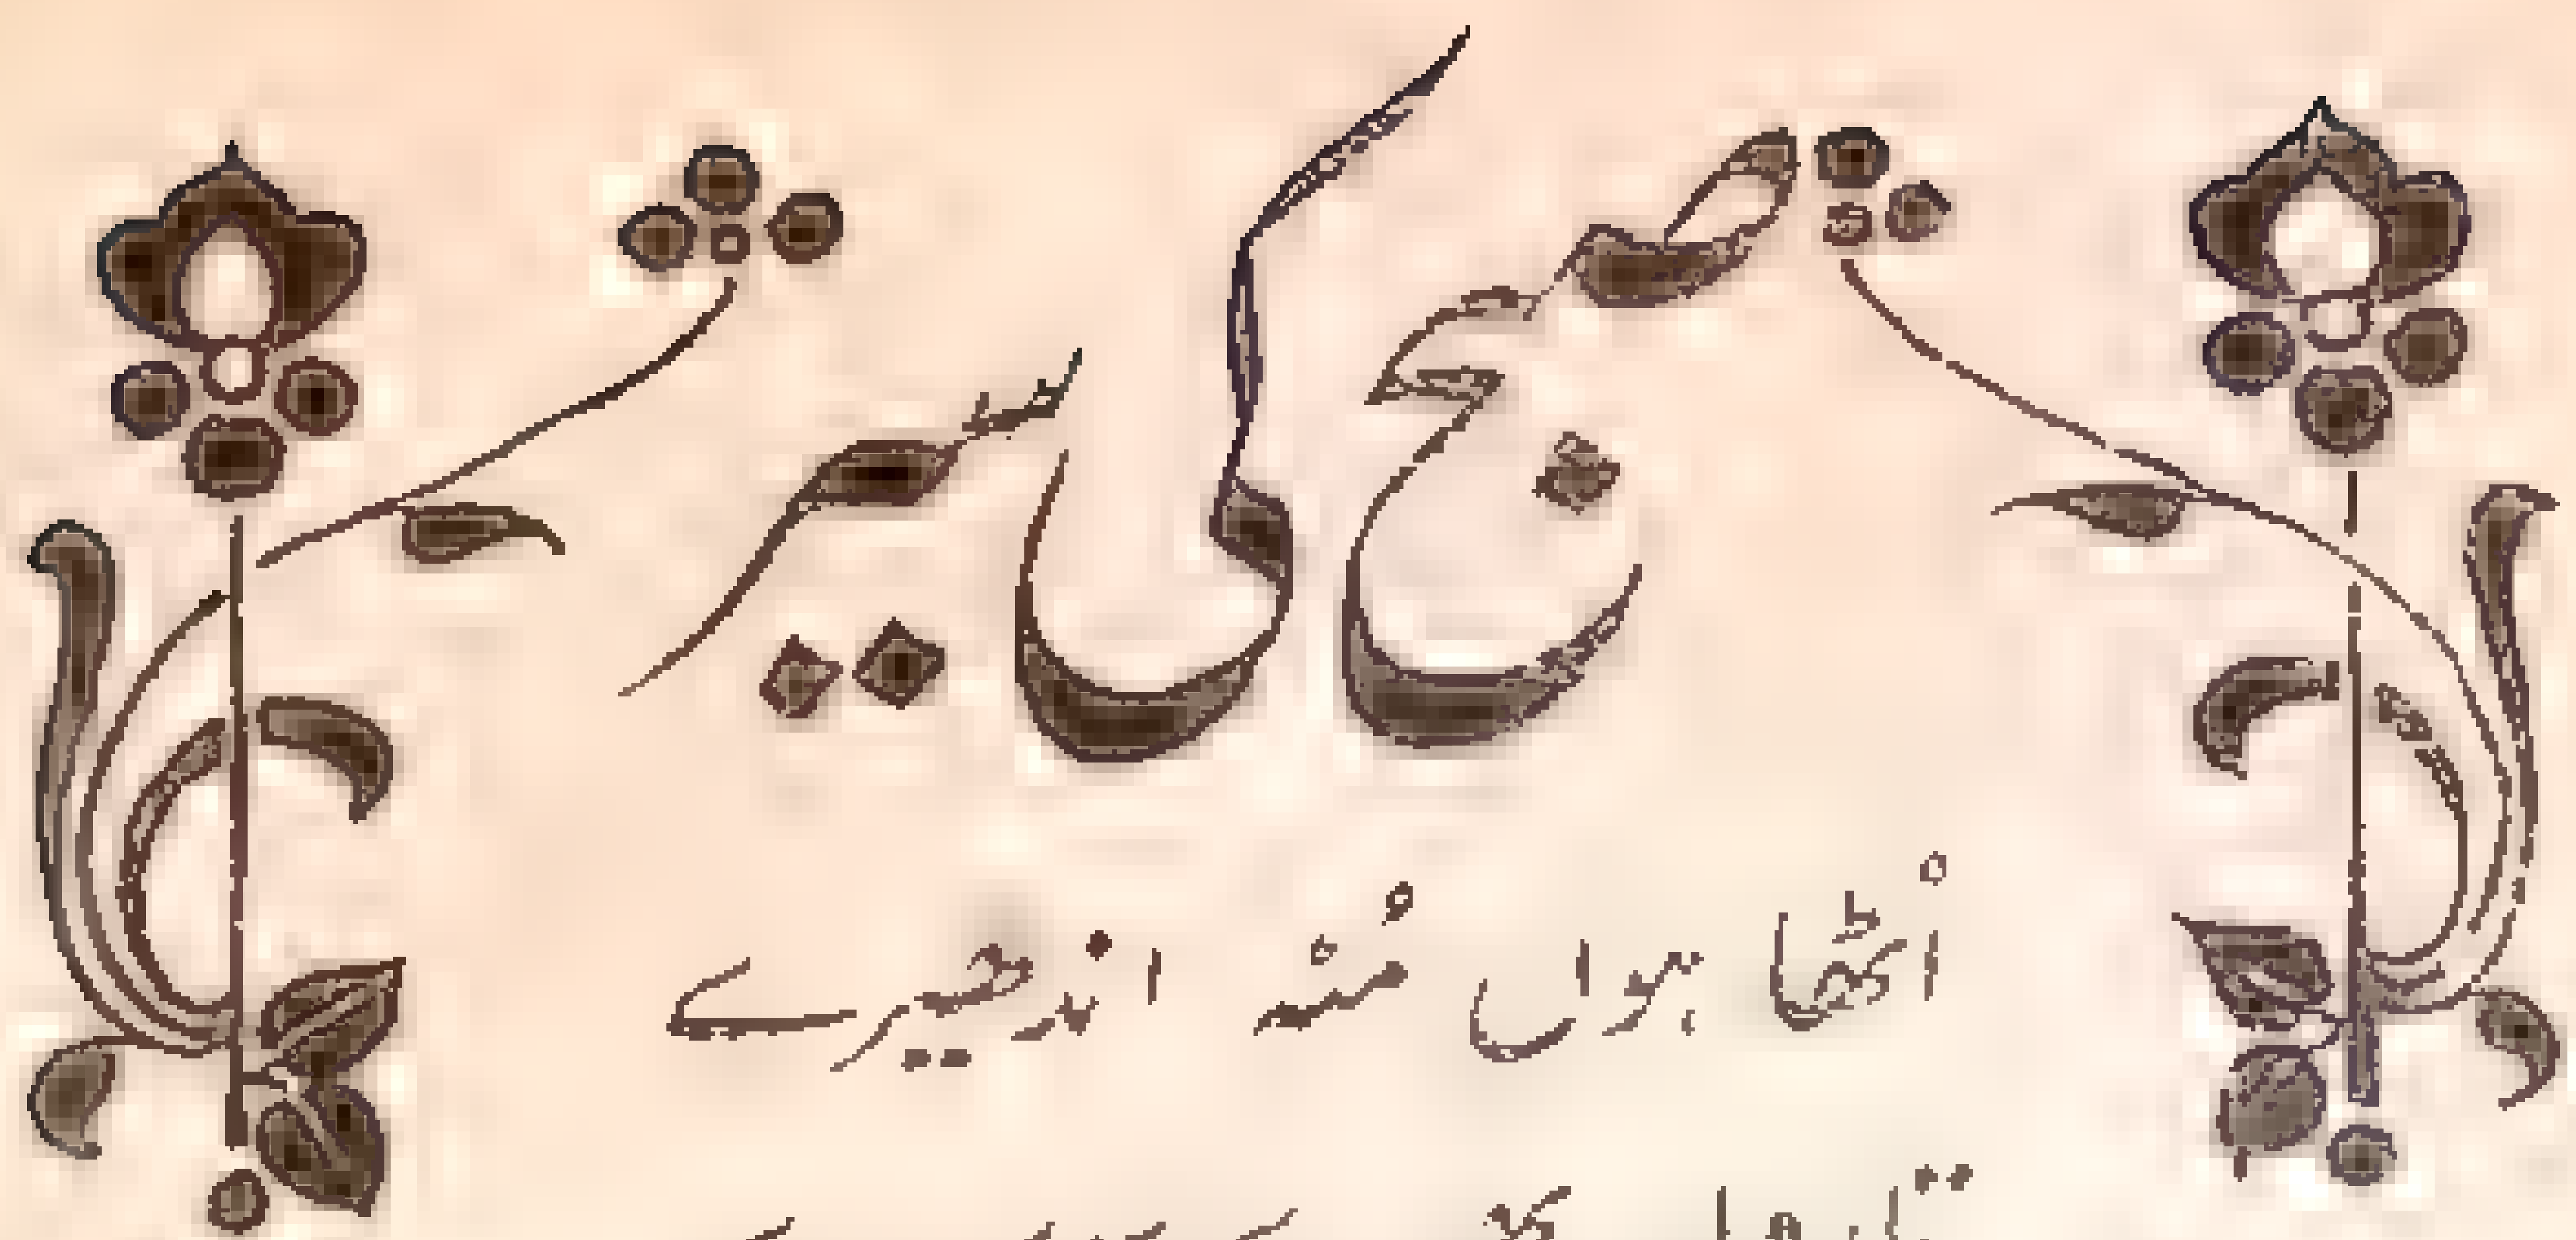 صبح کی سیر
اُٹھا ہوں مُنہ اندھیرے